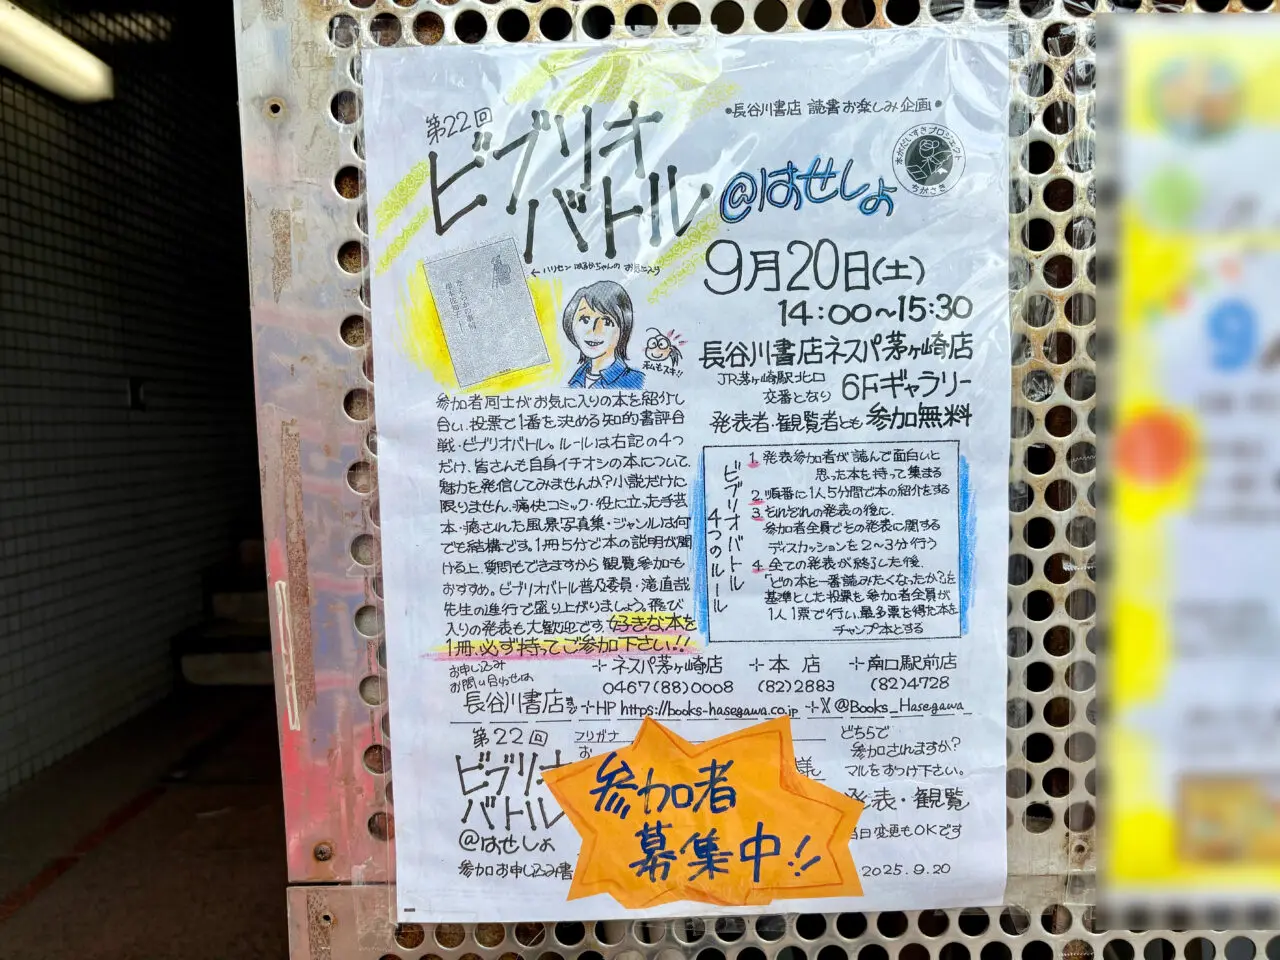 •長谷川書店 読書お楽しみ企画•
第22回
ビブリオ
バトル
@はせしょ
本がだいすきプロジェクト
ちがさき
9月20日(土)
14:00～15:30
長谷川書店ネスパ茅ヶ崎店
JR茅ヶ崎駅北口
交番となり
6Fギャラリー
発表者・観覧者とも参加無料
←ハリセン はるかちゃんの お気に入り
ボクもスキ!!
参加者同士がお気に入りの本を紹介し
合い、投票で1番を決める知的書評合
戦・ビブリオバトル。ルールは右記の4つ
だけ、皆さんも自身イチオシの本について、
魅力を発信してみませんか?小説だけに
限りません、痛快コミック・役に立った手芸
本・癒された風景写真集・ジャンルは何
でも結構です。1冊5分で本の説明が聞
ける上、質問もできますから観覧参加も
おすすめ。ビブリオバトル普及委員・滝直哉
先生の進行で盛り上がりましょう。飛び
入りの発表も大歓迎です。好きな本を
1冊、必ず持ってご参加下さい!!
ビブリオバトル
4つのルール
1. 発表参加者が読んで面白いと
思った本を持って集まる
2. 順番に1人5分間で本の紹介をする
3. それぞれの発表の後に、
参加者全員でその発表に関する
ディスカッションを2～3分行う
4. 全ての発表が終了した後、
「どの本を一番読みたくなったか?」を
基準とした投票を参加者全員が
1人1票で行い、最多票を得た本を
チャンプ本とする
お申し込み
お問い合わせは
長谷川書店まで
ネスパ茅ヶ崎店
0467(88)0008
本店
(82)2883
南口駅前店
(82)4728
HP https://books-hasegawa.co.jp X @Books_Hasegawa
第22回
ビブリオ
バトル
@はせしょ
参加お申し込み書
フリガナ
お
様
どちらで
参加されますか?
マルをおつけ下さい。
発表・観覧
当日変更もOKです
2025.9.20
参加者
募集中!!
9